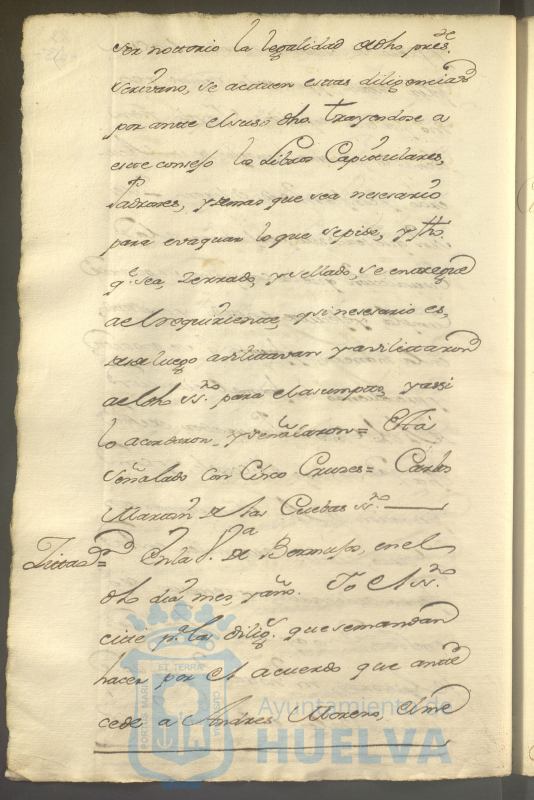 ser nottorio la legalidad de dho presᵗᵉ.
Scrivano, se actuen estas diligencias
por ante el suso dho. trayendose a
este consejo los Libros Capitulares,
Padrones, y demas que sea nesesario
para evaquar lo que se pide, y fho
qᵉ. sea, Zerrado, y sellado, se entregue
a el requiriente, y si nesesario es,
desde luego avilitavan y avilitaron
a el dho ssⁿᵒ. para el asumpto, y assi
lo acordaron y señalaron = Está
señalado con Cinco Cruzes = Carlos
Martin de las Cuebas ssⁿᵒ.
En la Vᵃ. de Bormujo, en el
dho dia, mes, y año. Yo el ssⁿᵒ
cité pᵃ. las diligᵃˢ. que se mandan
hacer por el acuerdo que ante
cede a Andres Moreno, el me
PORTUS MARIS ET TERRAE CUSTODIA
Ayuntamiento de
HUELVA